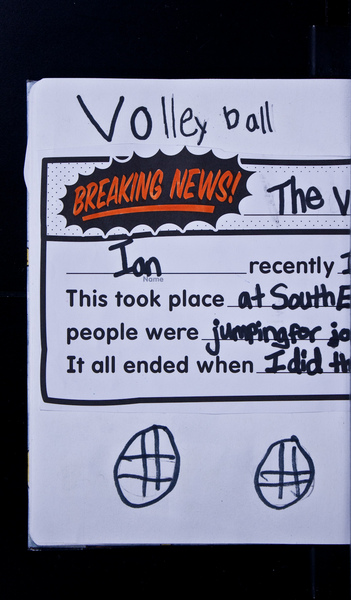 Volleyball
BREAKING NEWS!
The
Ian recently
Name
This took place at South
people were jumping for
It all ended when I did